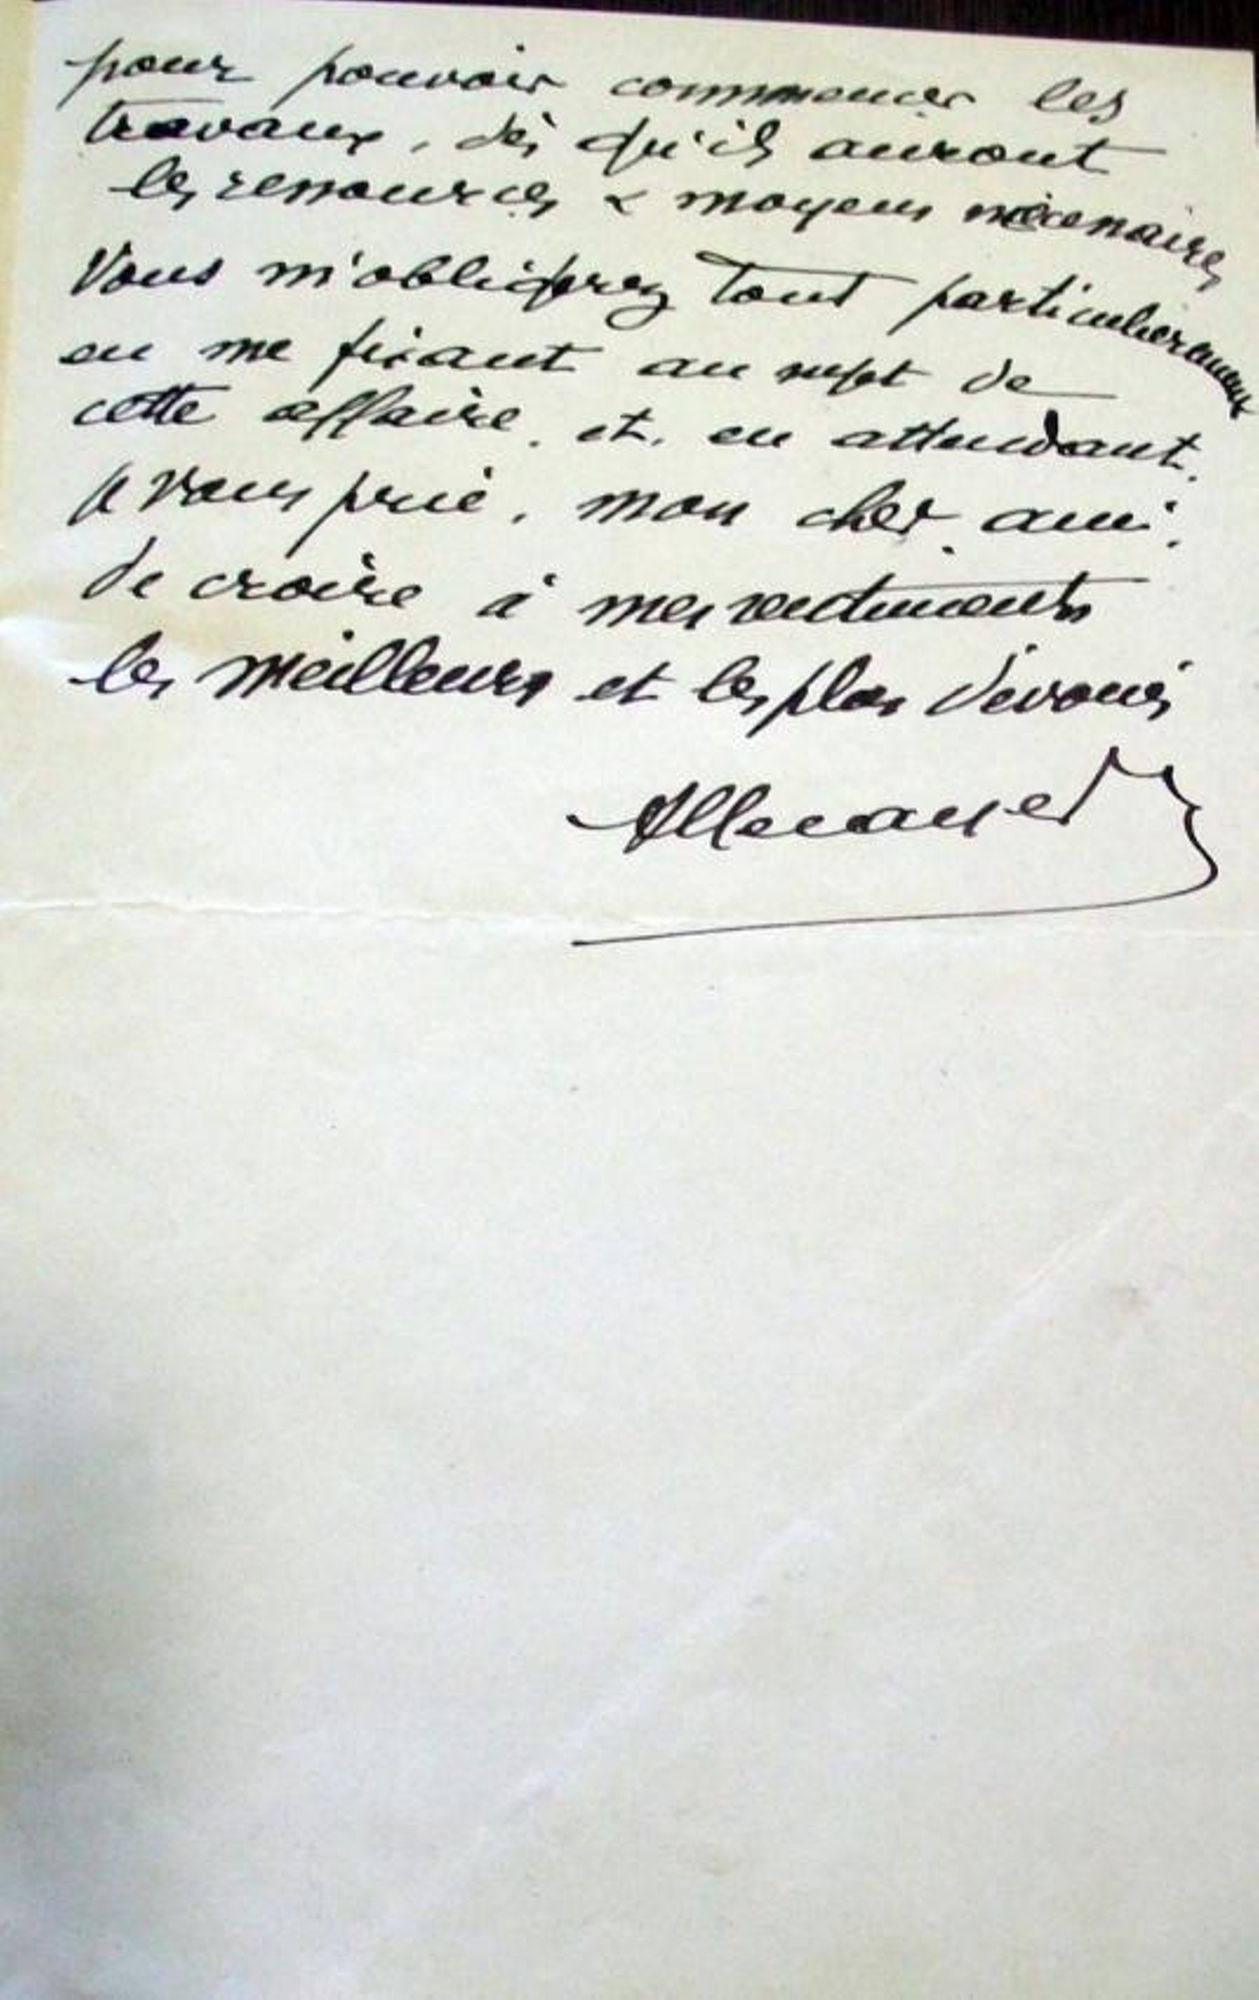 pour pouvoir commencer les
travaux, dès qu'ils auront
les ressources & moyens nécessaires
Vous m'obligerez tout particulièrement
en me fixant au sujet de
cette affaire, et, en attendant,
je vous prie, mon cher ami,
de croire à mes sentiments
les meilleurs et les plus dévoués